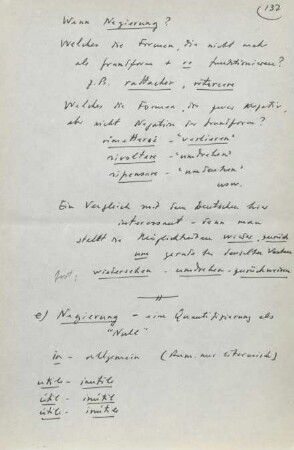 (137)
Wann Negierung?
Welches die Formen, die nicht mehr
als Grundform + re funktionieren?
z.B. rattacher, ritornare
Welches die Formen, die zwar Negativ,
aber nicht Negation der Grundform?
rimetterci - "verlieren"
rivoltare - "umdrehen"
ripensare - "umdenken"
usw.
Ein Vergleich mit dem Deutschen hier
interessant - denn man
stellt die Möglichkeiten wieder, zurück
um gerade bei derselben
wiedersehen - umdrehen - zurückweisen
e) Negierung - eine Quantifizierung als
"Null"
in - allgemein (Rum. nur literarisch)
utile - inutile
útil - inútil
útil - inútil